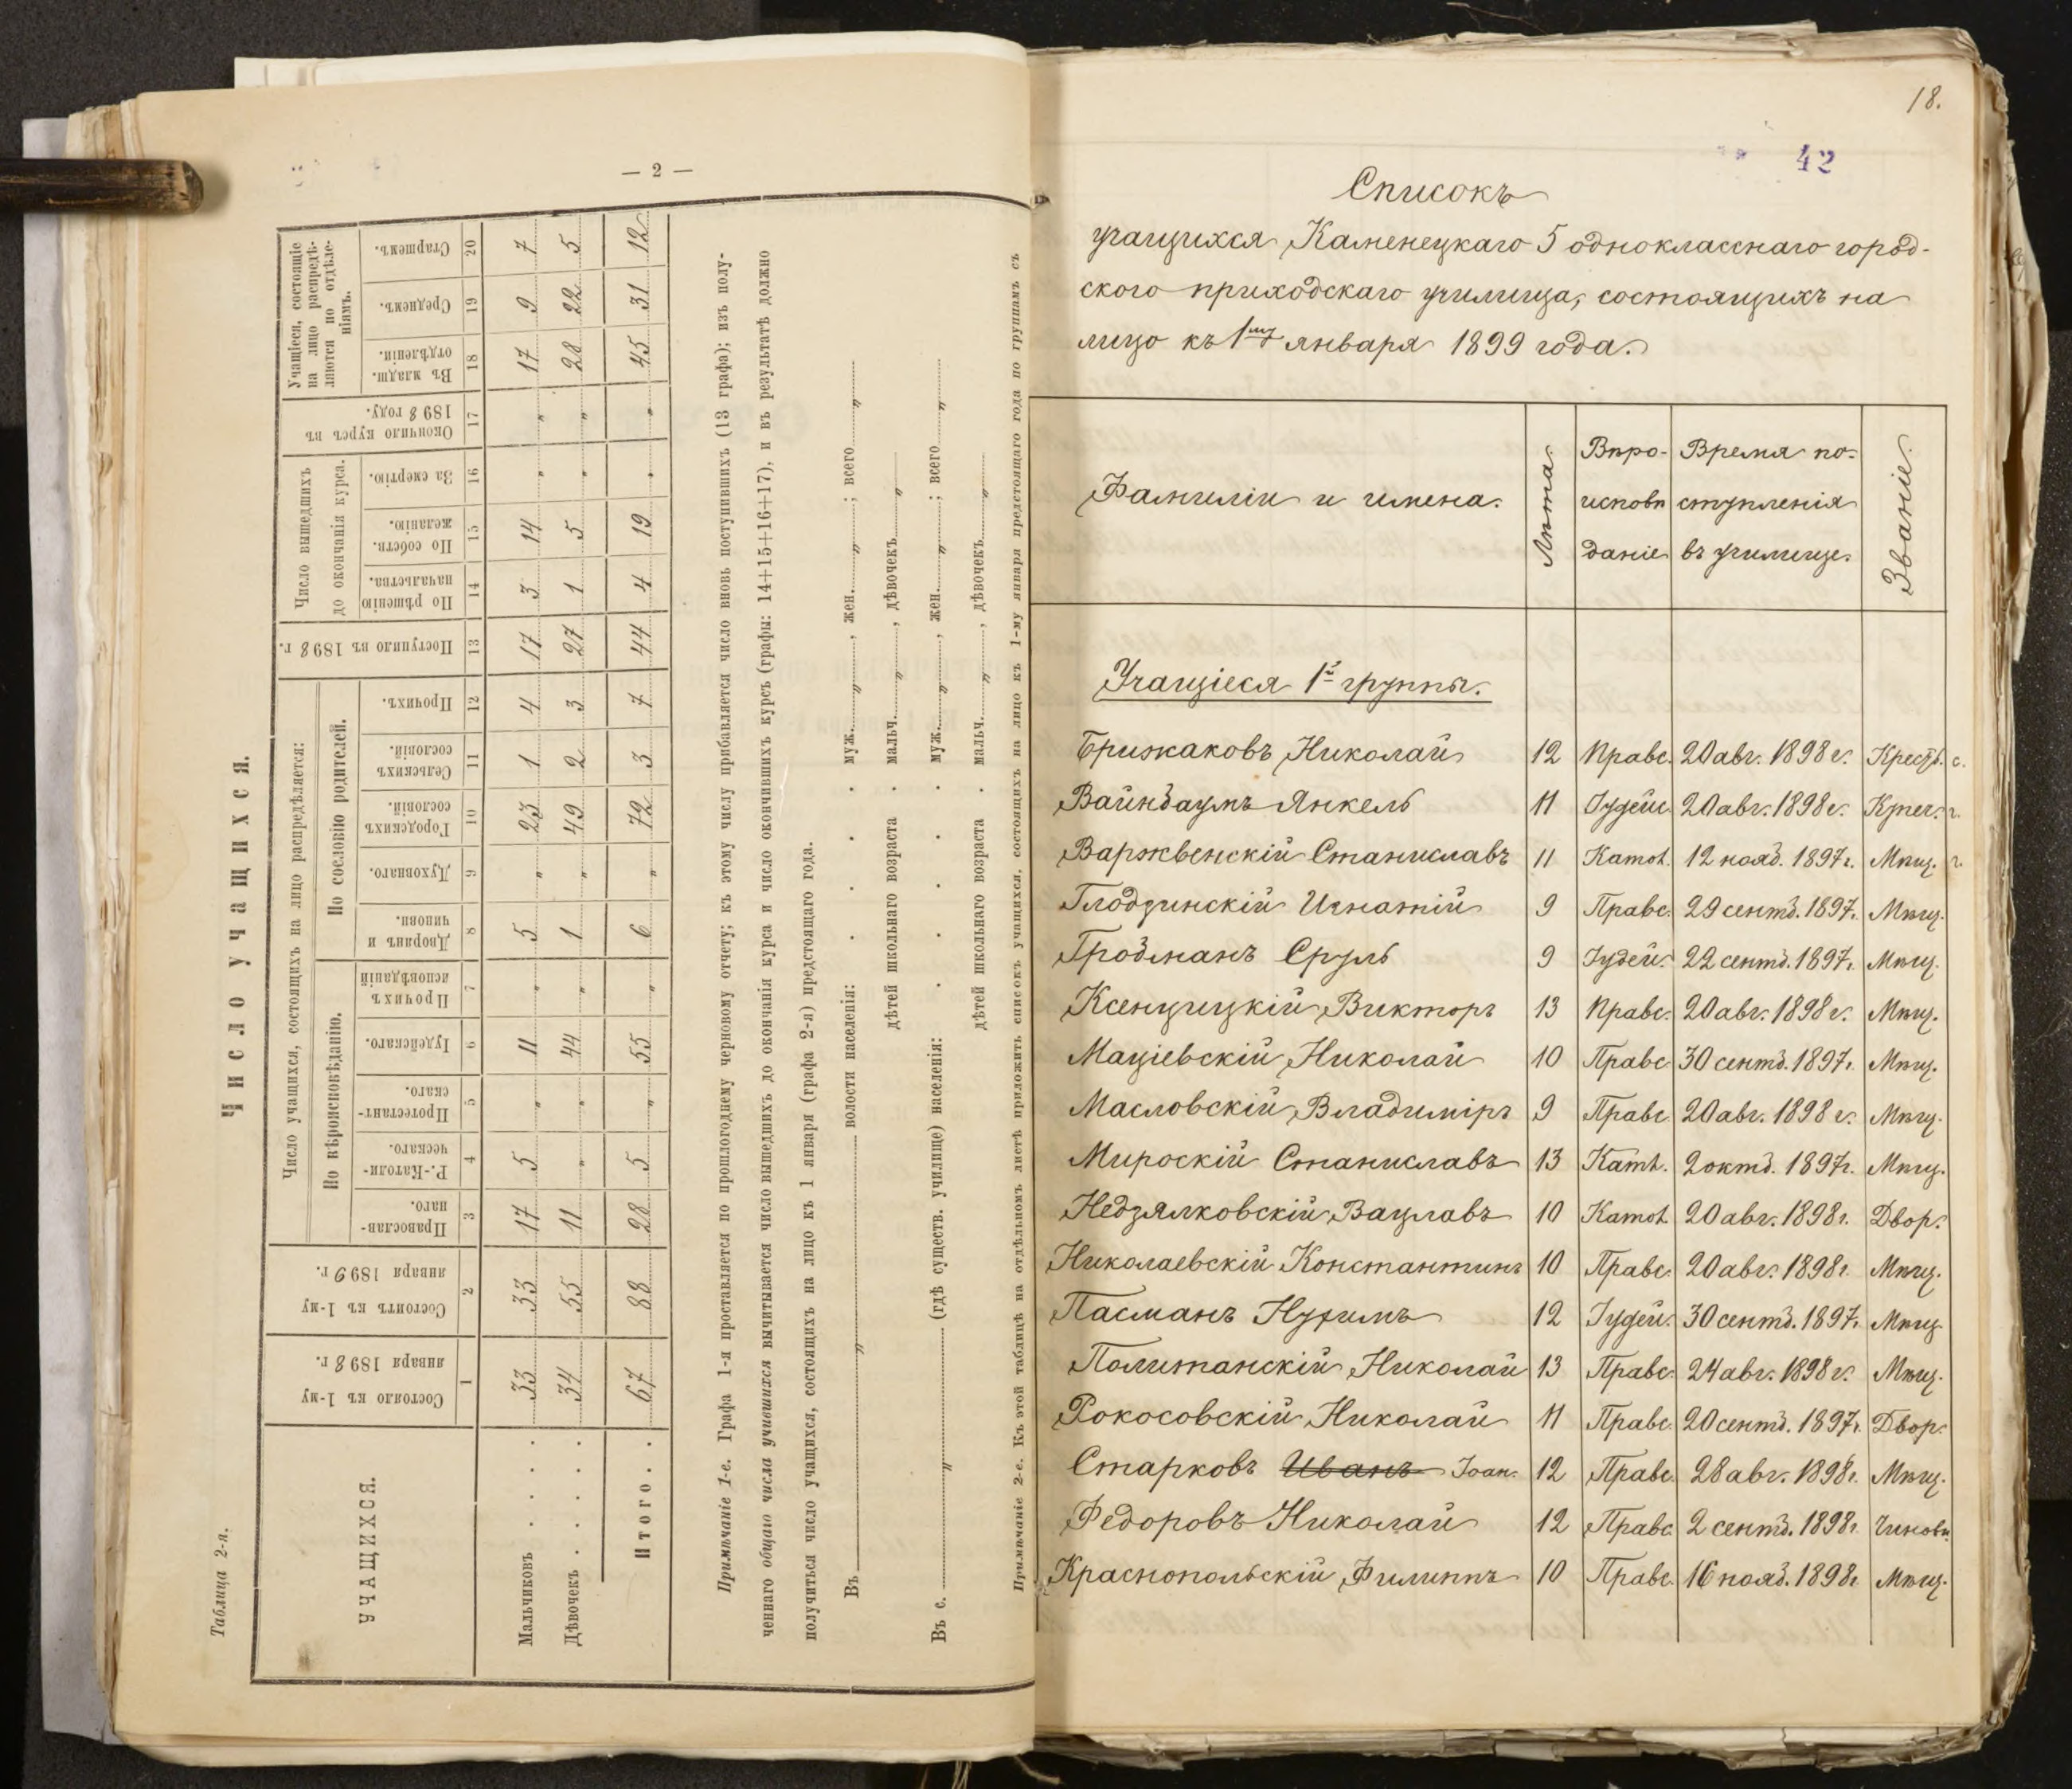 — 2 —
Таблица 2-я.
Число учащихся.
УЧАЩИХСЯ.
Состояло къ 1-му января 1898 г.
Состоитъ къ 1-му января 1899 г.
Число учащихся, состоящихъ на лицо распредѣляется:
По вѣроисповѣданію.
По сословію родителей.
Православнаго.
Р.-Католическаго.
Протестантскаго.
Іудейскаго.
Прочихъ исповѣданій
Дворянъ и чиновн.
Духовнаго.
Городскихъ сословій.
Сельскихъ сословій.
Прочихъ.
Поступило въ 1898 г.
Число вышедшихъ до окончанія курса.
По рѣшенію начальства.
По собств. желанію.
За смертію.
Окончило курсъ въ 1898 году.
Учащіеся, состоящіе на лицо распредѣляются по отдѣленіямъ.
Въ младш. отдѣленіи.
Среднемъ.
Старшемъ.
1 2 3 4 5 6 7 8 9 10 11 12 13 14 15 16 17 18 19 20
Мальчиковъ . . . . 33 33 17 5 „ 11 „ 5 „ 23 1 4 17 3 14 „ „ 17 9 7
Дѣвочекъ . . . . 34 55 11 „ „ 44 „ 1 „ 49 2 3 27 1 5 „ „ 28 22 5
Итого . . 67 88 28 5 „ 55 „ 6 „ 72 3 7 44 4 19 „ „ 45 31 12
Примѣчаніе 1-е. Графа 1-я проставляется по прошлогоднему черновому отчету; къ этому числу прибавляется число вновь поступившихъ (13 графа); изъ полу-
ченнаго общаго числа учившихся вычитывается число вышедшихъ до окончанія курса и число окончившихъ курсъ (графы: 14+15+16+17), и въ результатѣ должно
получиться число учащихся, состоящихъ на лицо къ 1 января (графа 2-я) предстоящаго года.
Въ „ волости населенія: . . . . муж. „ , жен. „ ; всего „
дѣтей школьнаго возраста . мальч. „ , дѣвочекъ „
Въ с. „ (гдѣ существ. училище) населенія: . . . . муж. „ , жен. „ ; всего „
дѣтей школьнаго возраста . мальч. „ , дѣвочекъ „
Примѣчаніе 2-е. Къ этой таблицѣ на отдѣльномъ листѣ приложить списокъ учащихся, состоящихъ на лицо къ 1-му января предстоящаго года по группамъ съ
18.
42
Списокъ
учащихся Каменецкаго 5 одноклассного город-
ского приходскаго училища, состоящихъ на
лицо къ 1му января 1899 года.
Фамиліи и имена. Лѣта. Вѣроисповѣданіе Время поступленія въ училище. Званіе.
Учащіеся 1й группы.
Брижаковъ Николай 12 Правс. 20 авг. 1898 г. Крест. с.
Вайнбаумъ Янкель 11 Іудейс. 20 авг. 1898 г. Купеч. г.
Варжвенскій Станиславъ 11 Катол. 12 нояб. 1897 г. Мѣщ. г.
Глодзинскій Игнатій 9 Правс. 29 сентб. 1897 г. Мѣщ.
Гройсманъ Сруль 9 Іудей. 22 сентб. 1897 г. Мѣщ.
Ксенцицкій Викторъ 13 Правс. 20 авг. 1898 г. Мѣщ.
Маціевскій Николай 10 Правс 30 сентб. 1897 г. Мѣщ.
Масловскій Владиміръ 9 Правс 20 авг. 1898 г. Мѣщ.
Мироскій Станиславъ 13 Катл. 2 октб. 1897 г. Мѣщ.
Недзялковскій Вацлавъ 10 Катол 20 авг. 1898 г. Двор.
Николаевскій Константинъ 10 Правс. 20 авг. 1898 г. Мѣщ.
Пасманъ Нухимъ 12 Іудей. 30 сентб. 1897 г. Мѣщ.
Политанскій Николай 13 Правс. 24 авг. 1898 г. Мѣщ.
Рокосовскій Николай 11 Правс. 20 сентб. 1897 г. Двор.
Старковъ Иванъ Іоан. 12 Правс. 28 авг. 1898 г. Мѣщ.
Федоровъ Николай 12 Правс 2 сентб. 1898 г. Чиновн.
Краснопольскій Филиппъ 10 Правс. 16 нояб. 1898 г. Мѣщ.